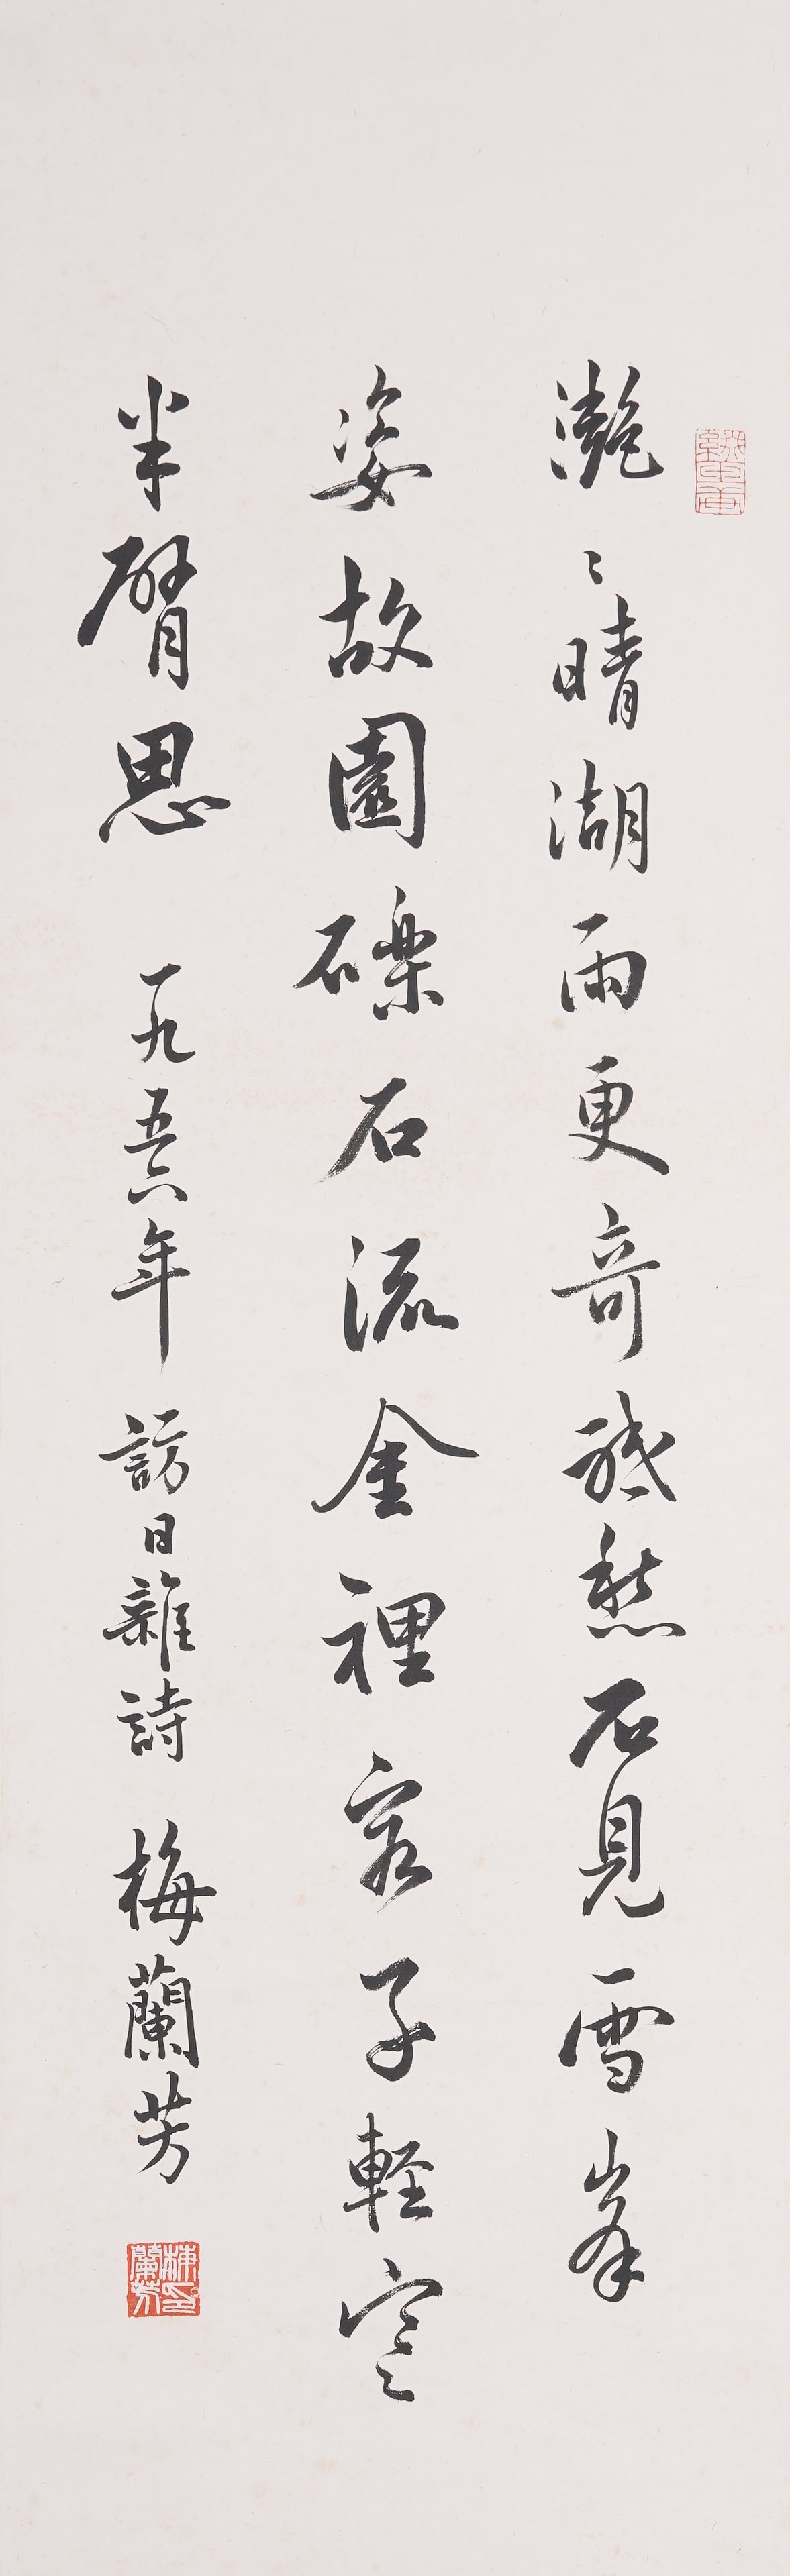 灔〻晴湖雨更奇祗愁石見雪峯
姿故園礫石流金裡客子軽寒
半臂思 一九五六年 訪日雜詩 梅蘭芳